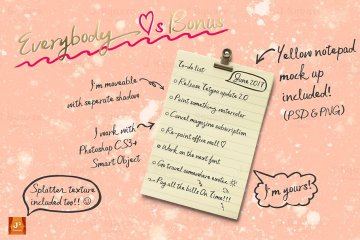 Everybody ♡s Bonus
I'm moveable
with seperate shadow
I work with
Photoshop CS3+
Smart Object
Splatter texture
included too!! ☺
To-do list
June 2017
Release Tatyna update 2.0
Paint something watercolor
Cancel magazine subscription
Re-paint office wall ♡
Work on the next font
Go travel somewhere exotic
Pay all the bills On Time!!!
Yellow notepad
mock up
included!
(PSD & PNG)
I'm yours!